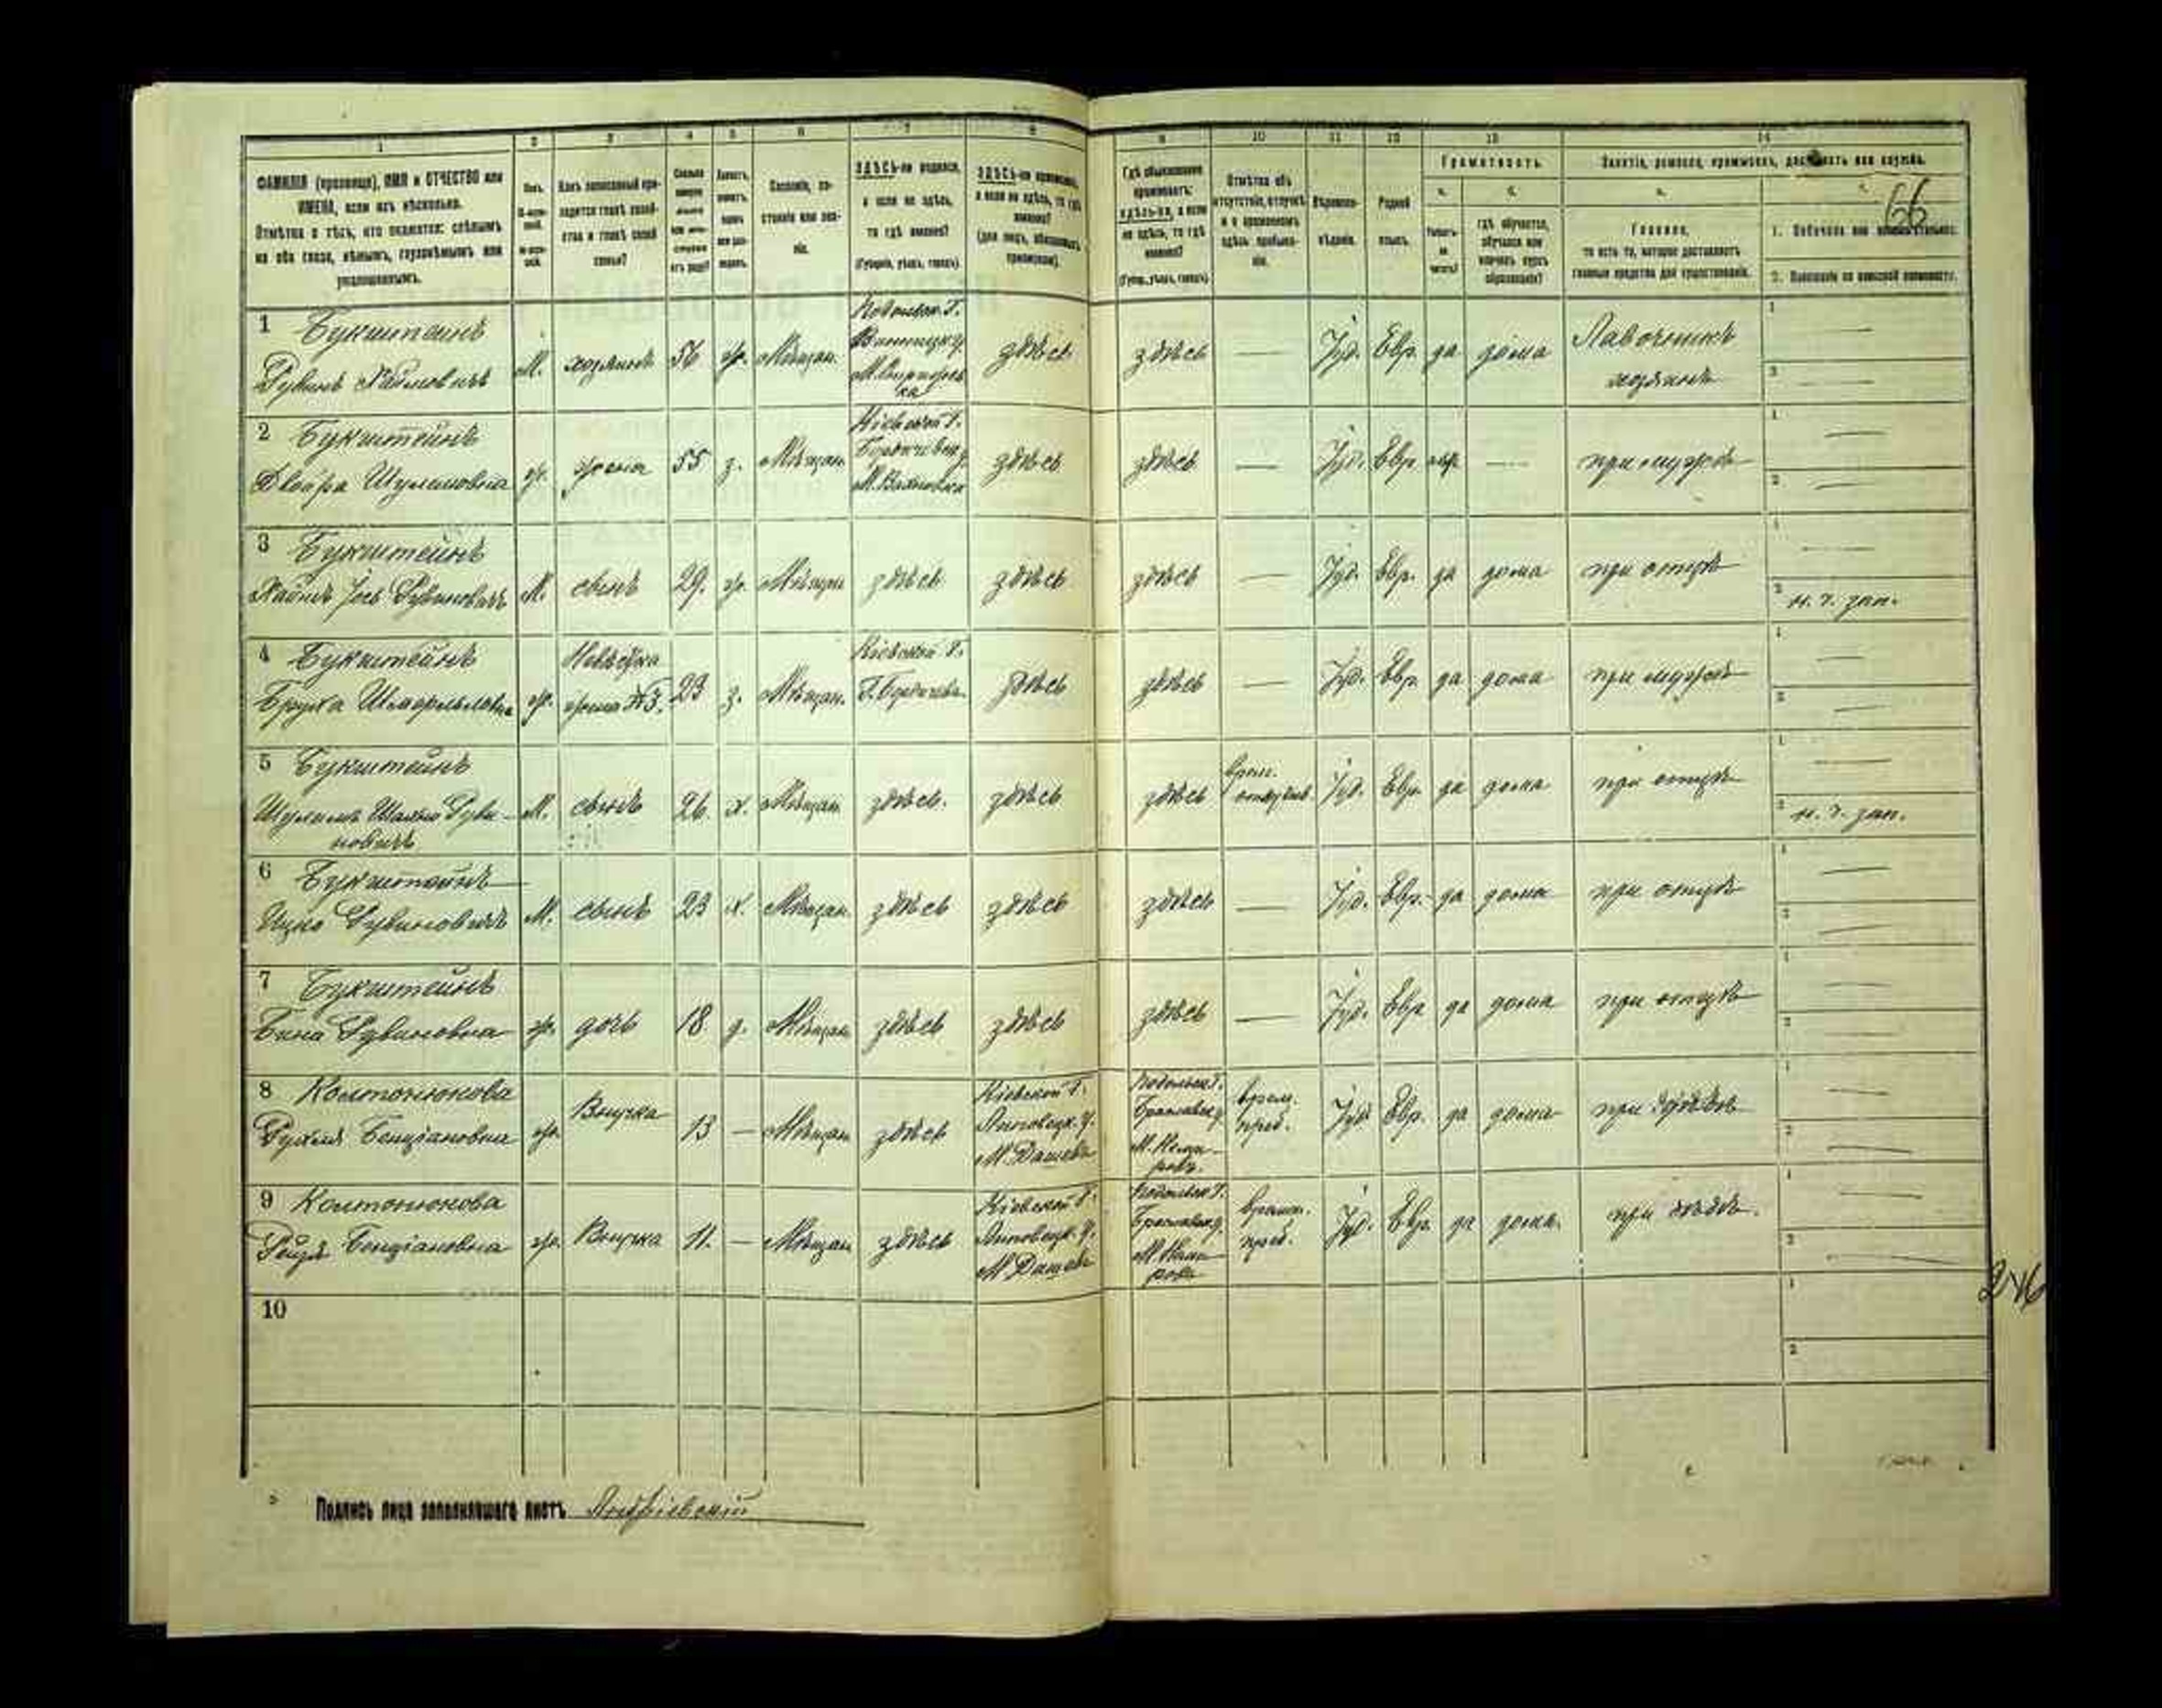 1 2 3 4 5 6 7 8 9 10 11 12 13 14
ФАМИЛІЯ (прозвище), ИМЯ и ОТЧЕСТВО или
ИМЕНА, если ихъ нѣсколько.
Отмѣтка о тѣхъ, кто окажется: слѣпымъ
на оба глаза, нѣмымъ, глухонѣмымъ или
умалишеннымъ.
Какъ записанный при-
ходится главѣ хозяй-
ства и главѣ своей
семьи?
Сословіе, со-
стояніе или зва-
ніе.
ЗДѢСЬ-ли родился,
а если не здѣсь,
то гдѣ именно?
(Губернія, уѣздъ, городъ).
ЗДѢСЬ-ли приписанъ,
а если не здѣсь, то гдѣ
именно?
(для лицъ, обязанныхъ
припискою).
Гдѣ обыкновенно
проживаетъ:
здѣсь-ли, а если
не здѣсь, то гдѣ
именно?
(Губ., уѣздъ, городъ).
Отмѣтка объ
отсутствіи, отлучкѣ
и о временномъ
здѣсь пребыва-
ніи.
Вѣроиспо-
вѣданіе.
Родной
языкъ.
Грамотность.
а. б.
Умѣетъ-
ли
читать?
гдѣ обучается,
обучался или
кончилъ курсъ
образованія?
Занятіе, ремесло, промыселъ, должность или служба.
а.
Главное,
то есть то, которое доставляетъ
главныя средства для существованія.
66
1. Побочное или вспомогательное.
2. Положеніе по воинской повинности.
1 Букштейнъ
Рувинъ Хаимовичъ М. хозяинъ 56 ж. Мѣщан.
Подольск. Г.
Винницк. у.
здѣсь здѣсь — Іуд. Евр. да дома Лавочникъ
хозяинъ
2 Букштейнъ
Двойра Шулимовна ж. жена 55 з. Мѣщан.
Кіевской Г.
Бердичевск. у.
М. Вахновка
здѣсь здѣсь — Іуд. Евр. — при мужѣ
3 Букштейнъ
Хаимъ Іось Рувиновичъ М. сынъ 29. ж. Мѣщан. здѣсь здѣсь здѣсь — Іуд. Евр. да дома при отцѣ
н. ч. зап.
4 Букштейнъ
ж.
Невѣстка
жена №3. 23 з. Мѣщан.
Кіевской Г.
Г. Бердичевъ
здѣсь здѣсь — Іуд. Евр. да дома при мужѣ
5 Букштейнъ
Шулимъ Руви-
новичъ
М. сынъ 26. х. Мѣщан. здѣсь. здѣсь здѣсь
врем.
Іуд. Евр. да дома при отцѣ
н. ч. зап.
6 Букштейнъ
Ицко Рувиновичъ М. сынъ 23 х. Мѣщан. здѣсь здѣсь здѣсь — Іуд. Евр. да дома при отцѣ
7 Букштейнъ
Бина Рувиновна ж. дочь 18 д. Мѣщан. здѣсь здѣсь здѣсь — Іуд. Евр. да дома при отцѣ
8
ж. Внучка 13 — Мѣщан. здѣсь
Кіевской Г.
Липовецк. у.
М. Дашевъ
Подольск. Г.
Брацлавск. у.
М. Неми-
ровъ.
врем.
преб.
Іуд. Евр. да дома при дѣдѣ
9
ж. Внучка 11. — Мѣщан. здѣсь
Кіевской Г.
Липовецк. у.
М. Дашевъ
Подольск. Г.
Брацлавск. у.
М. Неми-
ровъ
врем.
преб.
Іуд. Евр. да дома. при дѣдѣ.
246
10
Подпись лица заполнявшаго листъ Андріевскій